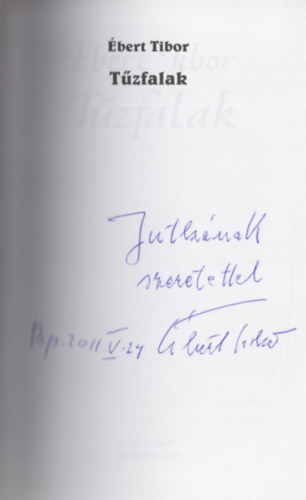 Ébert Tibor
Tűzfalak
Jutkának
szeretettel
Bp. 2011 V. 24 Ébert Tibor